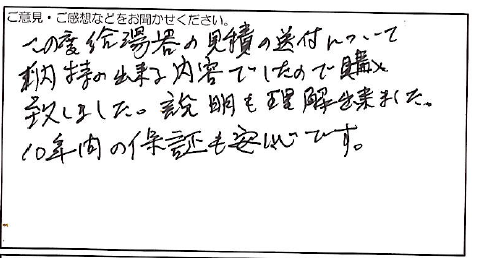 ご意見・ご感想などをお聞かせください。
この度給湯器の見積の送付について
納得の出来る内容でしたので購入
致しました。説明も理解出来ました。
10年間の保証も安心です。